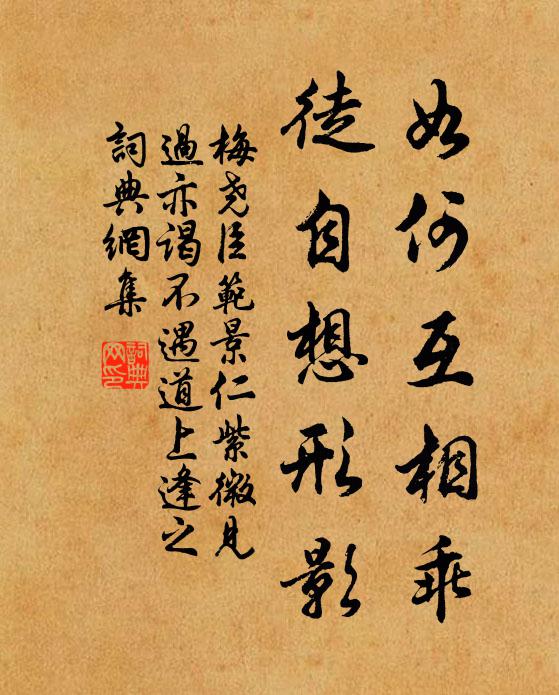 如何互相乖
徒自想形影
梅尧臣範景仁紫微見
過亦谒不遇道上逢之
詞典網集
詞典网印